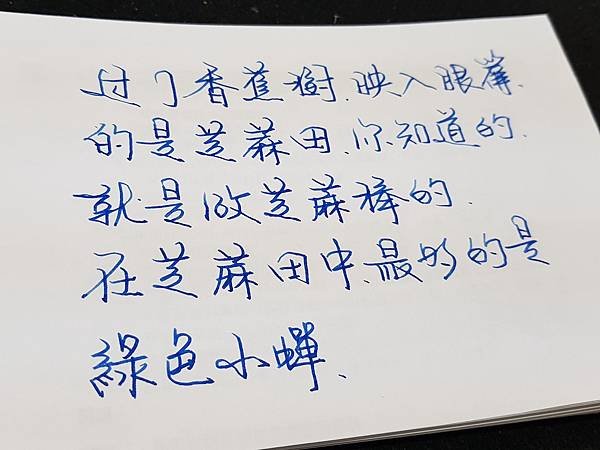 过了香蕉樹、映入眼簾、
的是芝蔴田、你知道的、
就是做芝蔴棒的、
在芝蔴田中、最多的是
綠色小蟬、